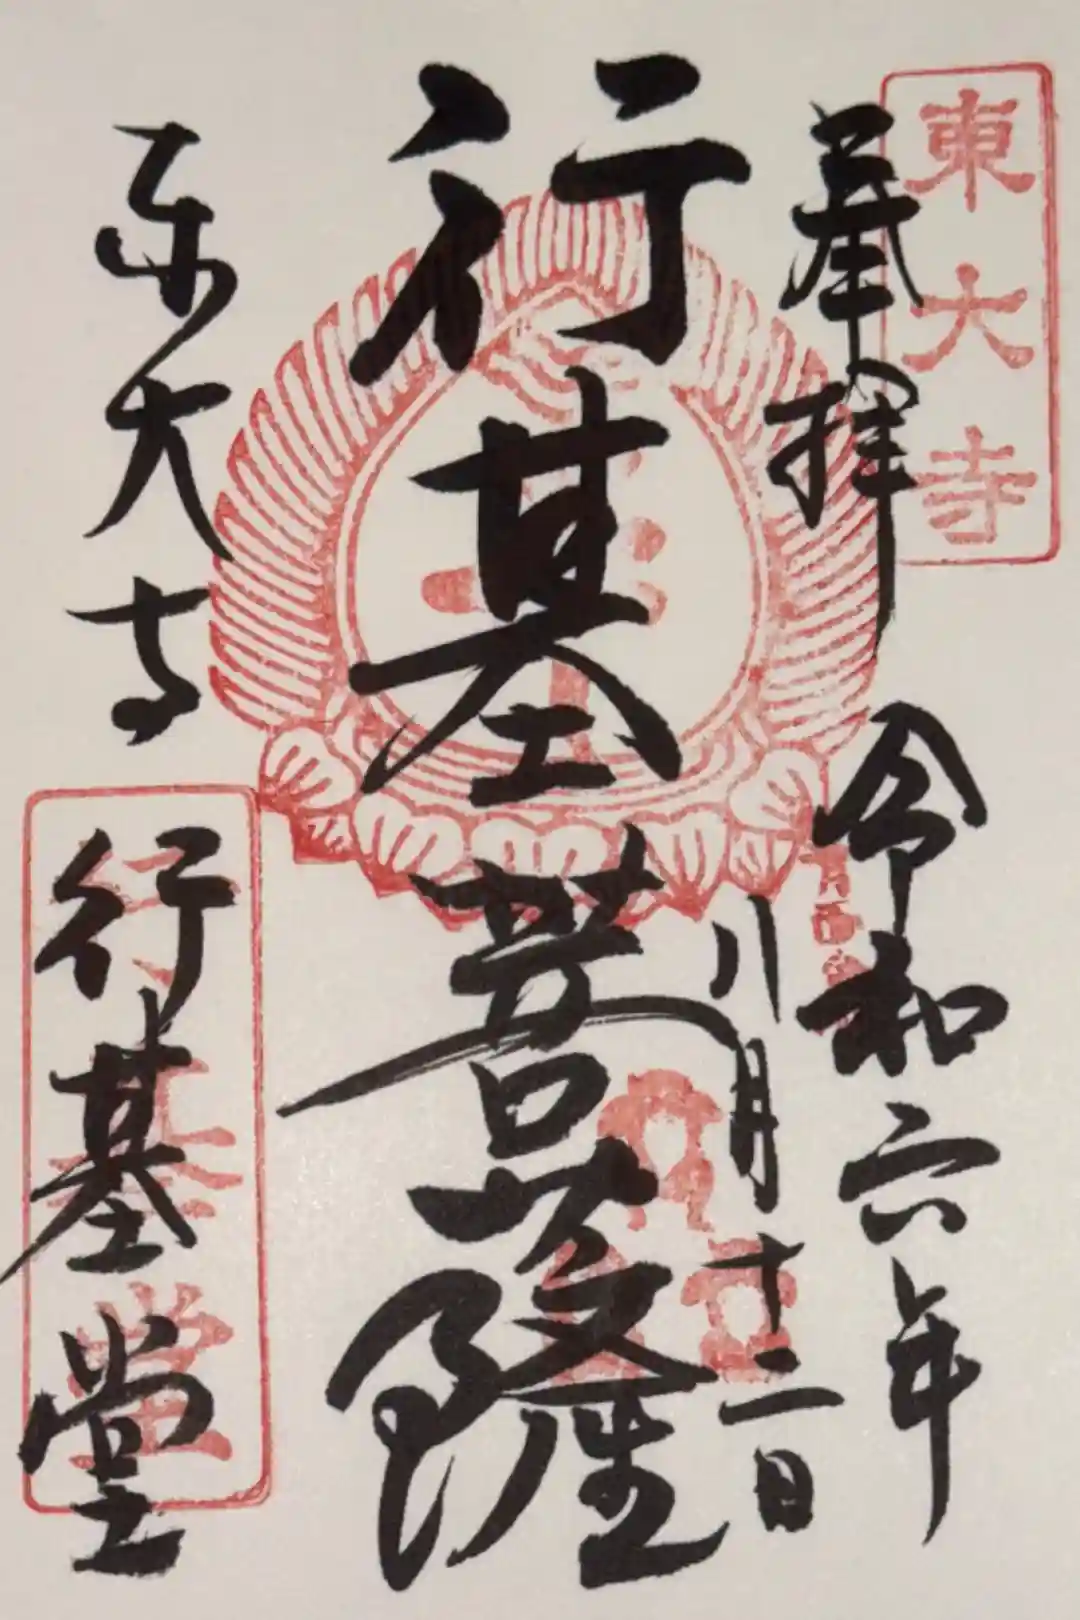 東大寺
奉拝
令和六年
八月十二日
行基菩薩
東大寺
行基堂
行基堂